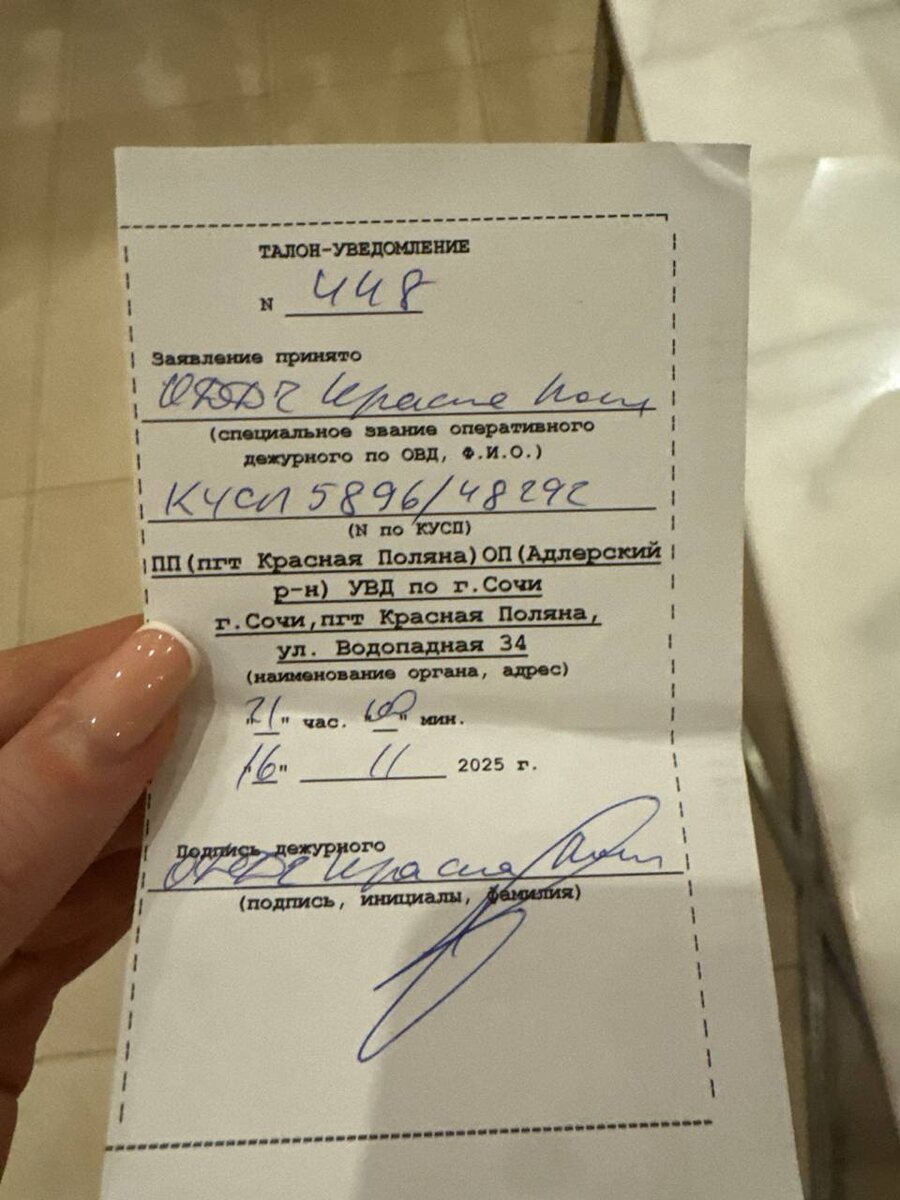 ТАЛОН-УВЕДОМЛЕНИЕ
N 448
Заявление принято
Красна
(специальное звание оперативного
дежурного по ОВД, Ф.И.О.)
КУСП 5896/48292
(N по КУСП)
ПП(пгт Красная Поляна)ОП(Адлерский
р-н) УВД по г.Сочи
г.Сочи,пгт Красная Поляна,
ул. Водопадная 34
(наименование органа, адрес)
"21" час. "00" мин.
"16" 11 2025 г.
Подпись дежурного
Красна
(подпись, инициалы, фамилия)